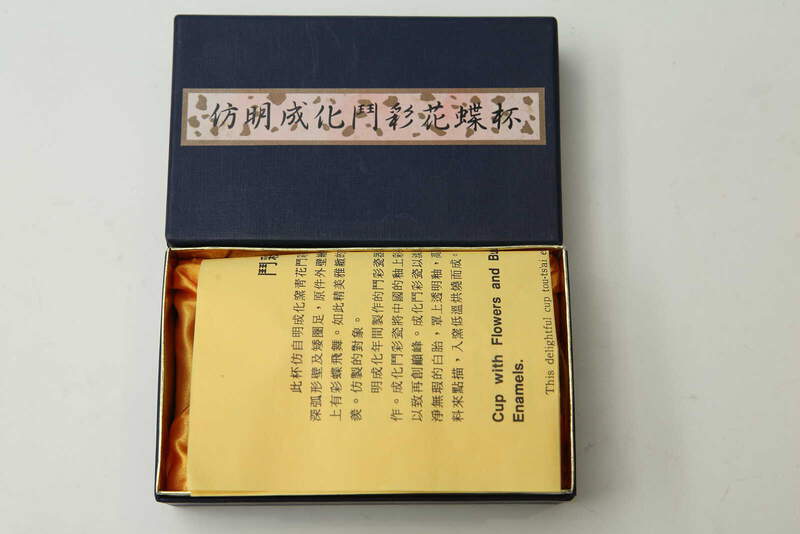 仿明成化鬥彩花蝶杯
鬥彩
此杯仿自明成化窯青花鬥彩
深弧形壁及矮圈足，原件外壁繪
上有彩蝶飛舞。如此精美雅緻的
羨。仿製的對象。
明成化年間製作的鬥彩瓷器
作。成化鬥彩瓷將中國的釉上彩
以致再創巔峰。成化鬥彩瓷以淡
淨無瑕的白胎，罩上透明釉，
料來點描，入窯低溫烘燒而成。
Cup with Flowers and Bu
Enamels.
This delightful cup tou-ts'ai e